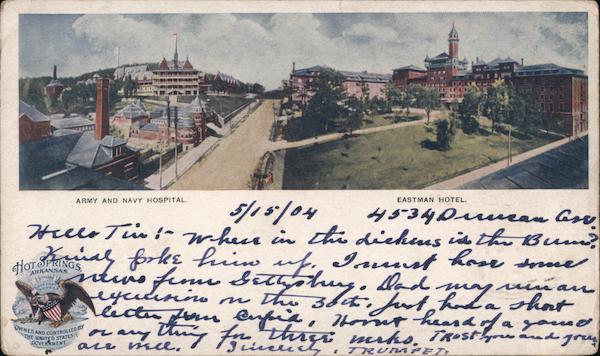 ARMY AND NAVY HOSPITAL.
EASTMAN HOTEL.
5/15/04 4534 Duncan Ave.
Hello Tim:- Where in the dickens is the Bum?
Kindly poke him up, I must have some
news from Gettysburg. Dad may run an
excursion on the 30th. Just had a short
letter from Cupid. Havn't heard of a game
or anything for three weeks. Trust you and yours
are well. Sincerely, TRUMPET.
HOT SPRINGS
ARKANSAS
OWNED AND CONTROLLED BY
THE UNITED STATES
GOVERNMENT.